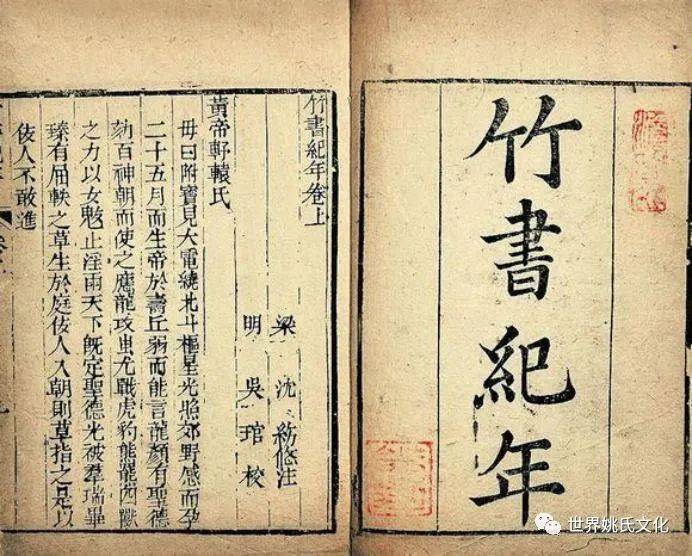 竹書紀年
竹書紀年卷上
梁 沈 約修注
明 吳 琯 校
黃帝軒轅氏
母曰附寶見大電繞北斗樞星光照郊野感而孕
二十五月而生帝於壽丘弱而能言龍顏有聖德
劾百神朝而使之應龍攻蚩尤戰虎豹熊羆四獸
之力以女魃止淫雨天下既定聖德光被羣瑞畢
臻有屈軼之草生於庭佞人入朝則草指之是以
佞人不敢進
世界姚氏文化